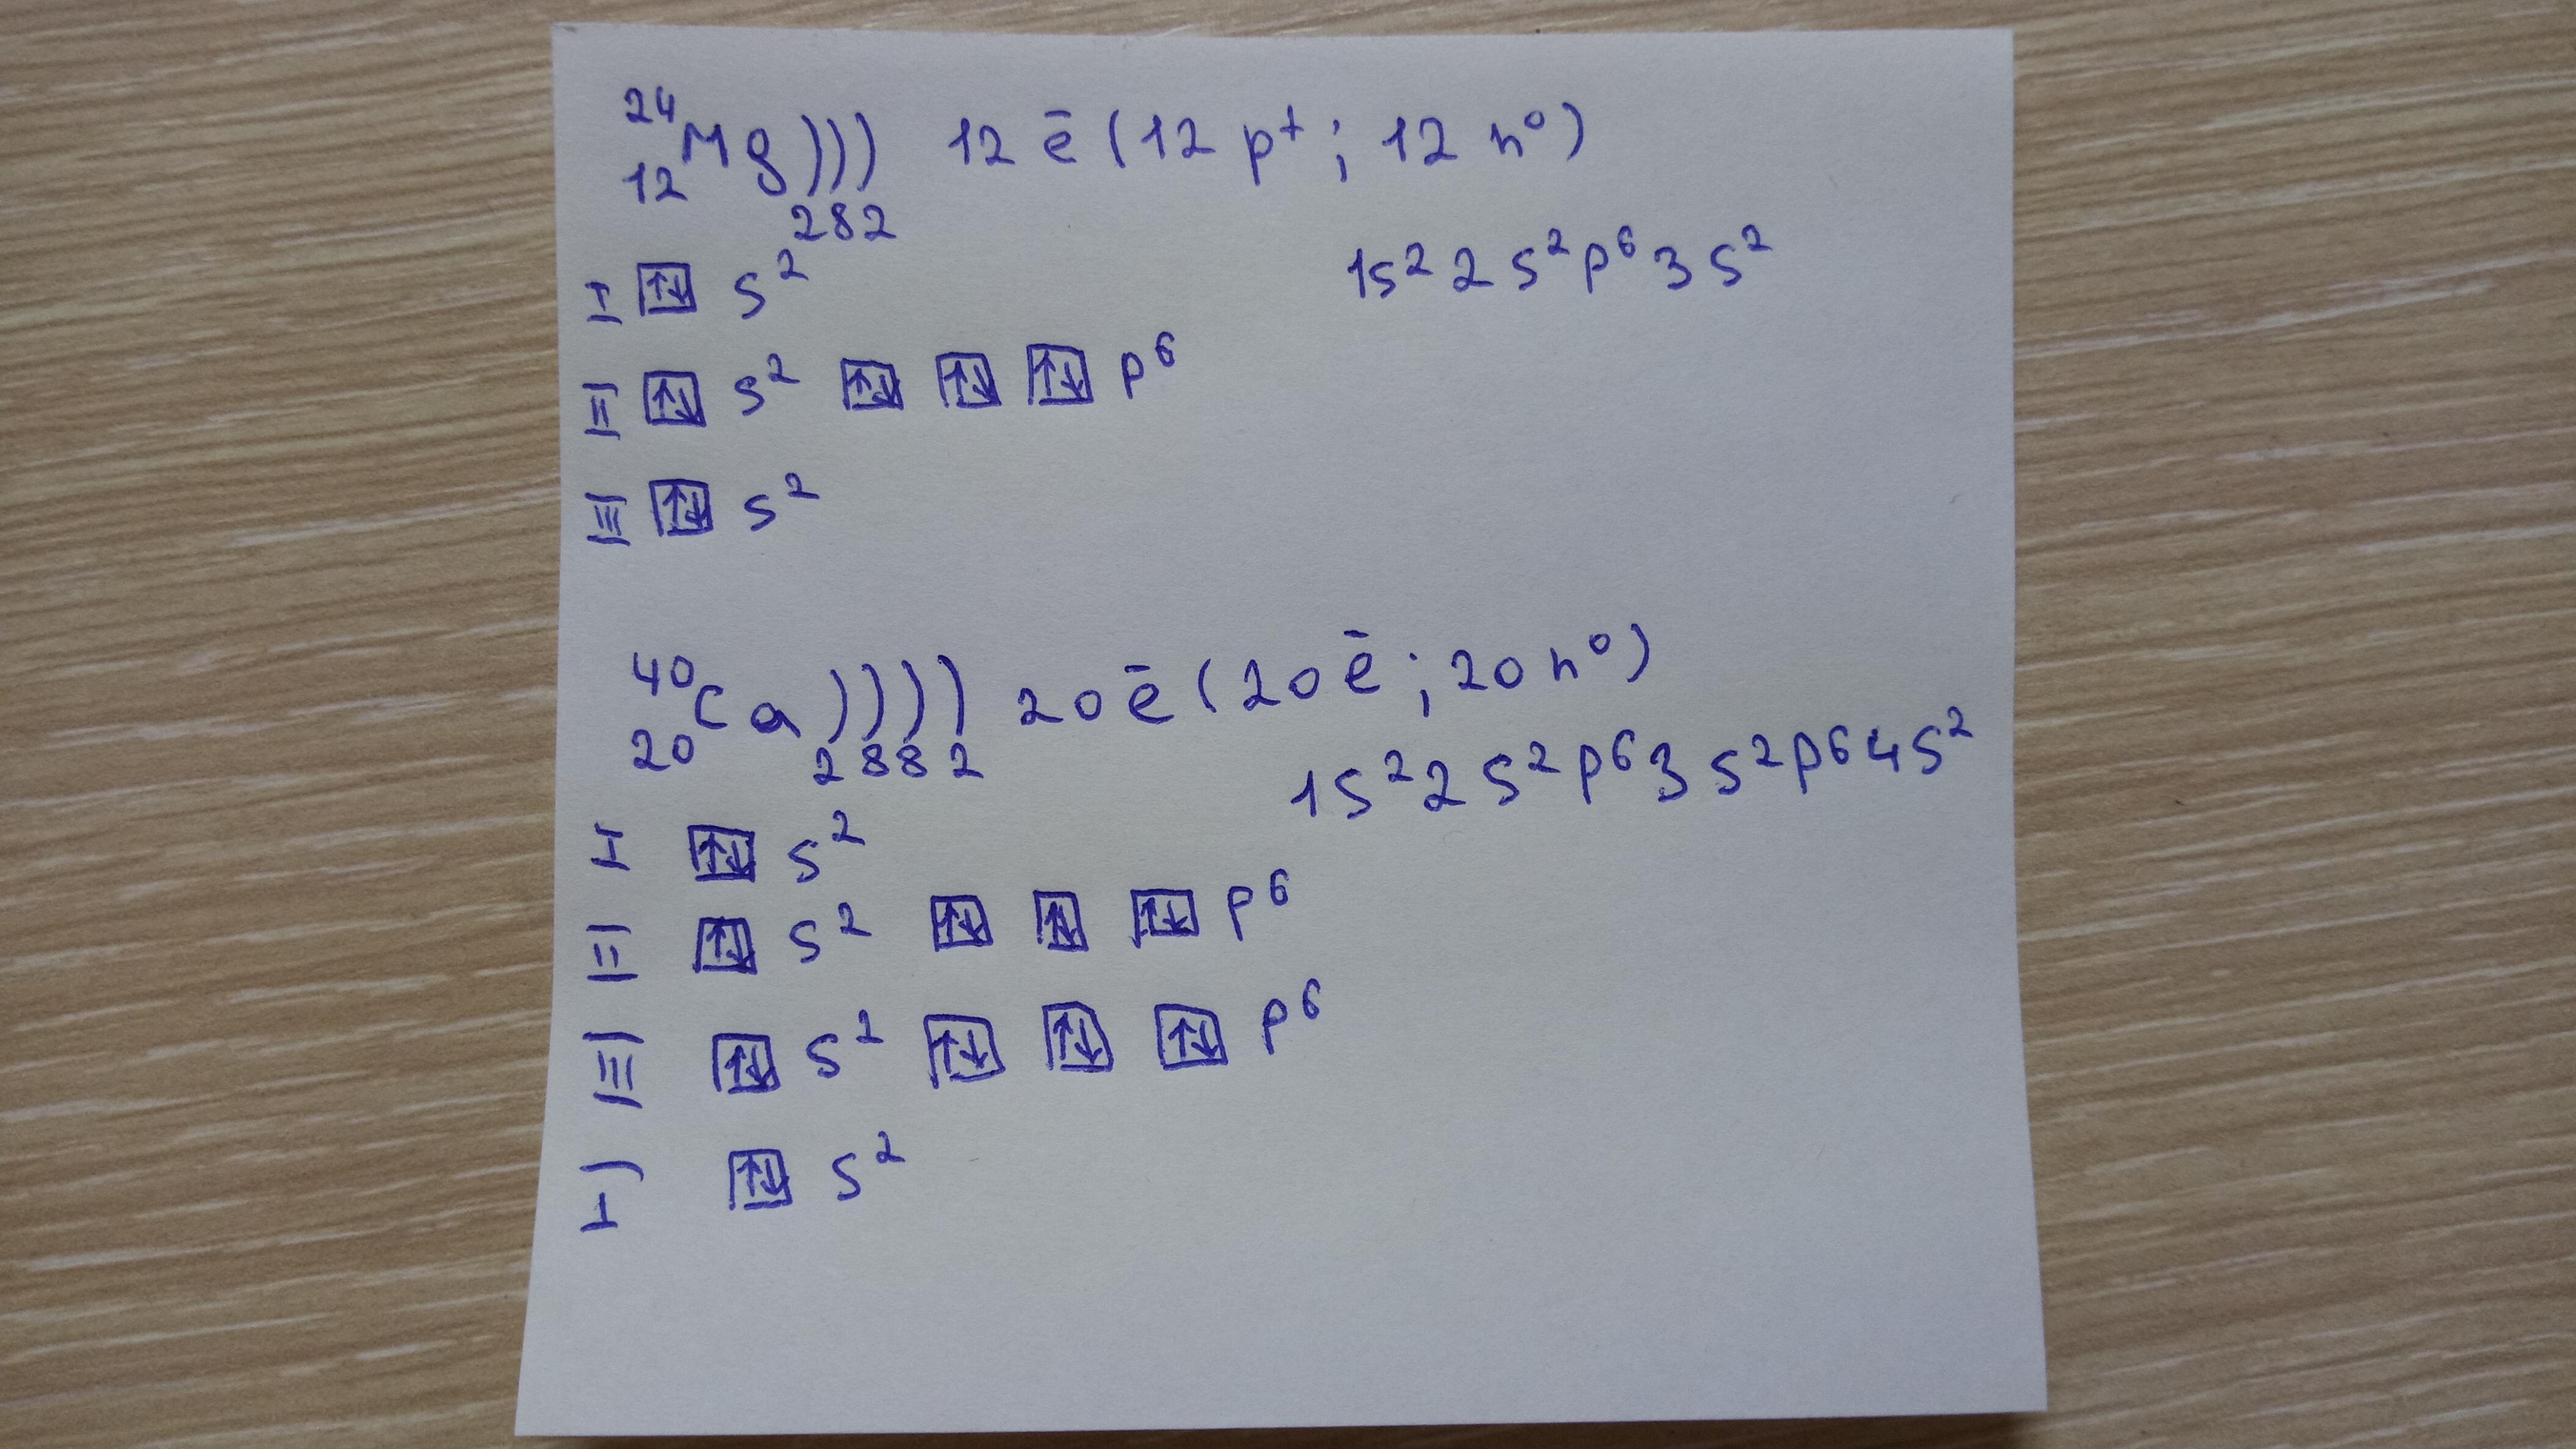 ²⁴₁₂Mg))) 12 ē (12 p⁺; 12 n⁰)
282
1s² 2s²p⁶3s²
I ↑↓ s²
II ↑↓ s² ↑↓ ↑↓ ↑↓ p⁶
III ↑↓ s²
⁴⁰₂₀Ca)))) 20ē (20ē; 20n⁰)
2 8 8 2
1s²2s²p⁶3s²p⁶4s²
I ↑↓ s²
II ↑↓ s² ↑↓ ↑↓ ↑↓ p⁶
III ↑↓ s² ↑↓ ↑↓ ↑↓ p⁶
↑↓ s²